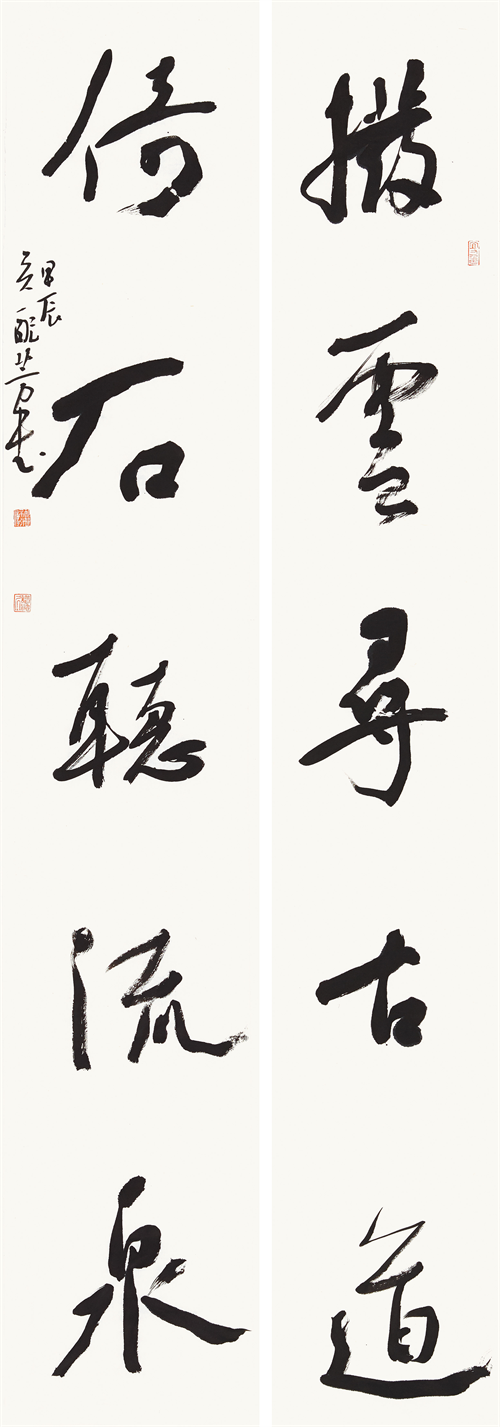 撥雲尋古道
倚石聽流泉
甲辰